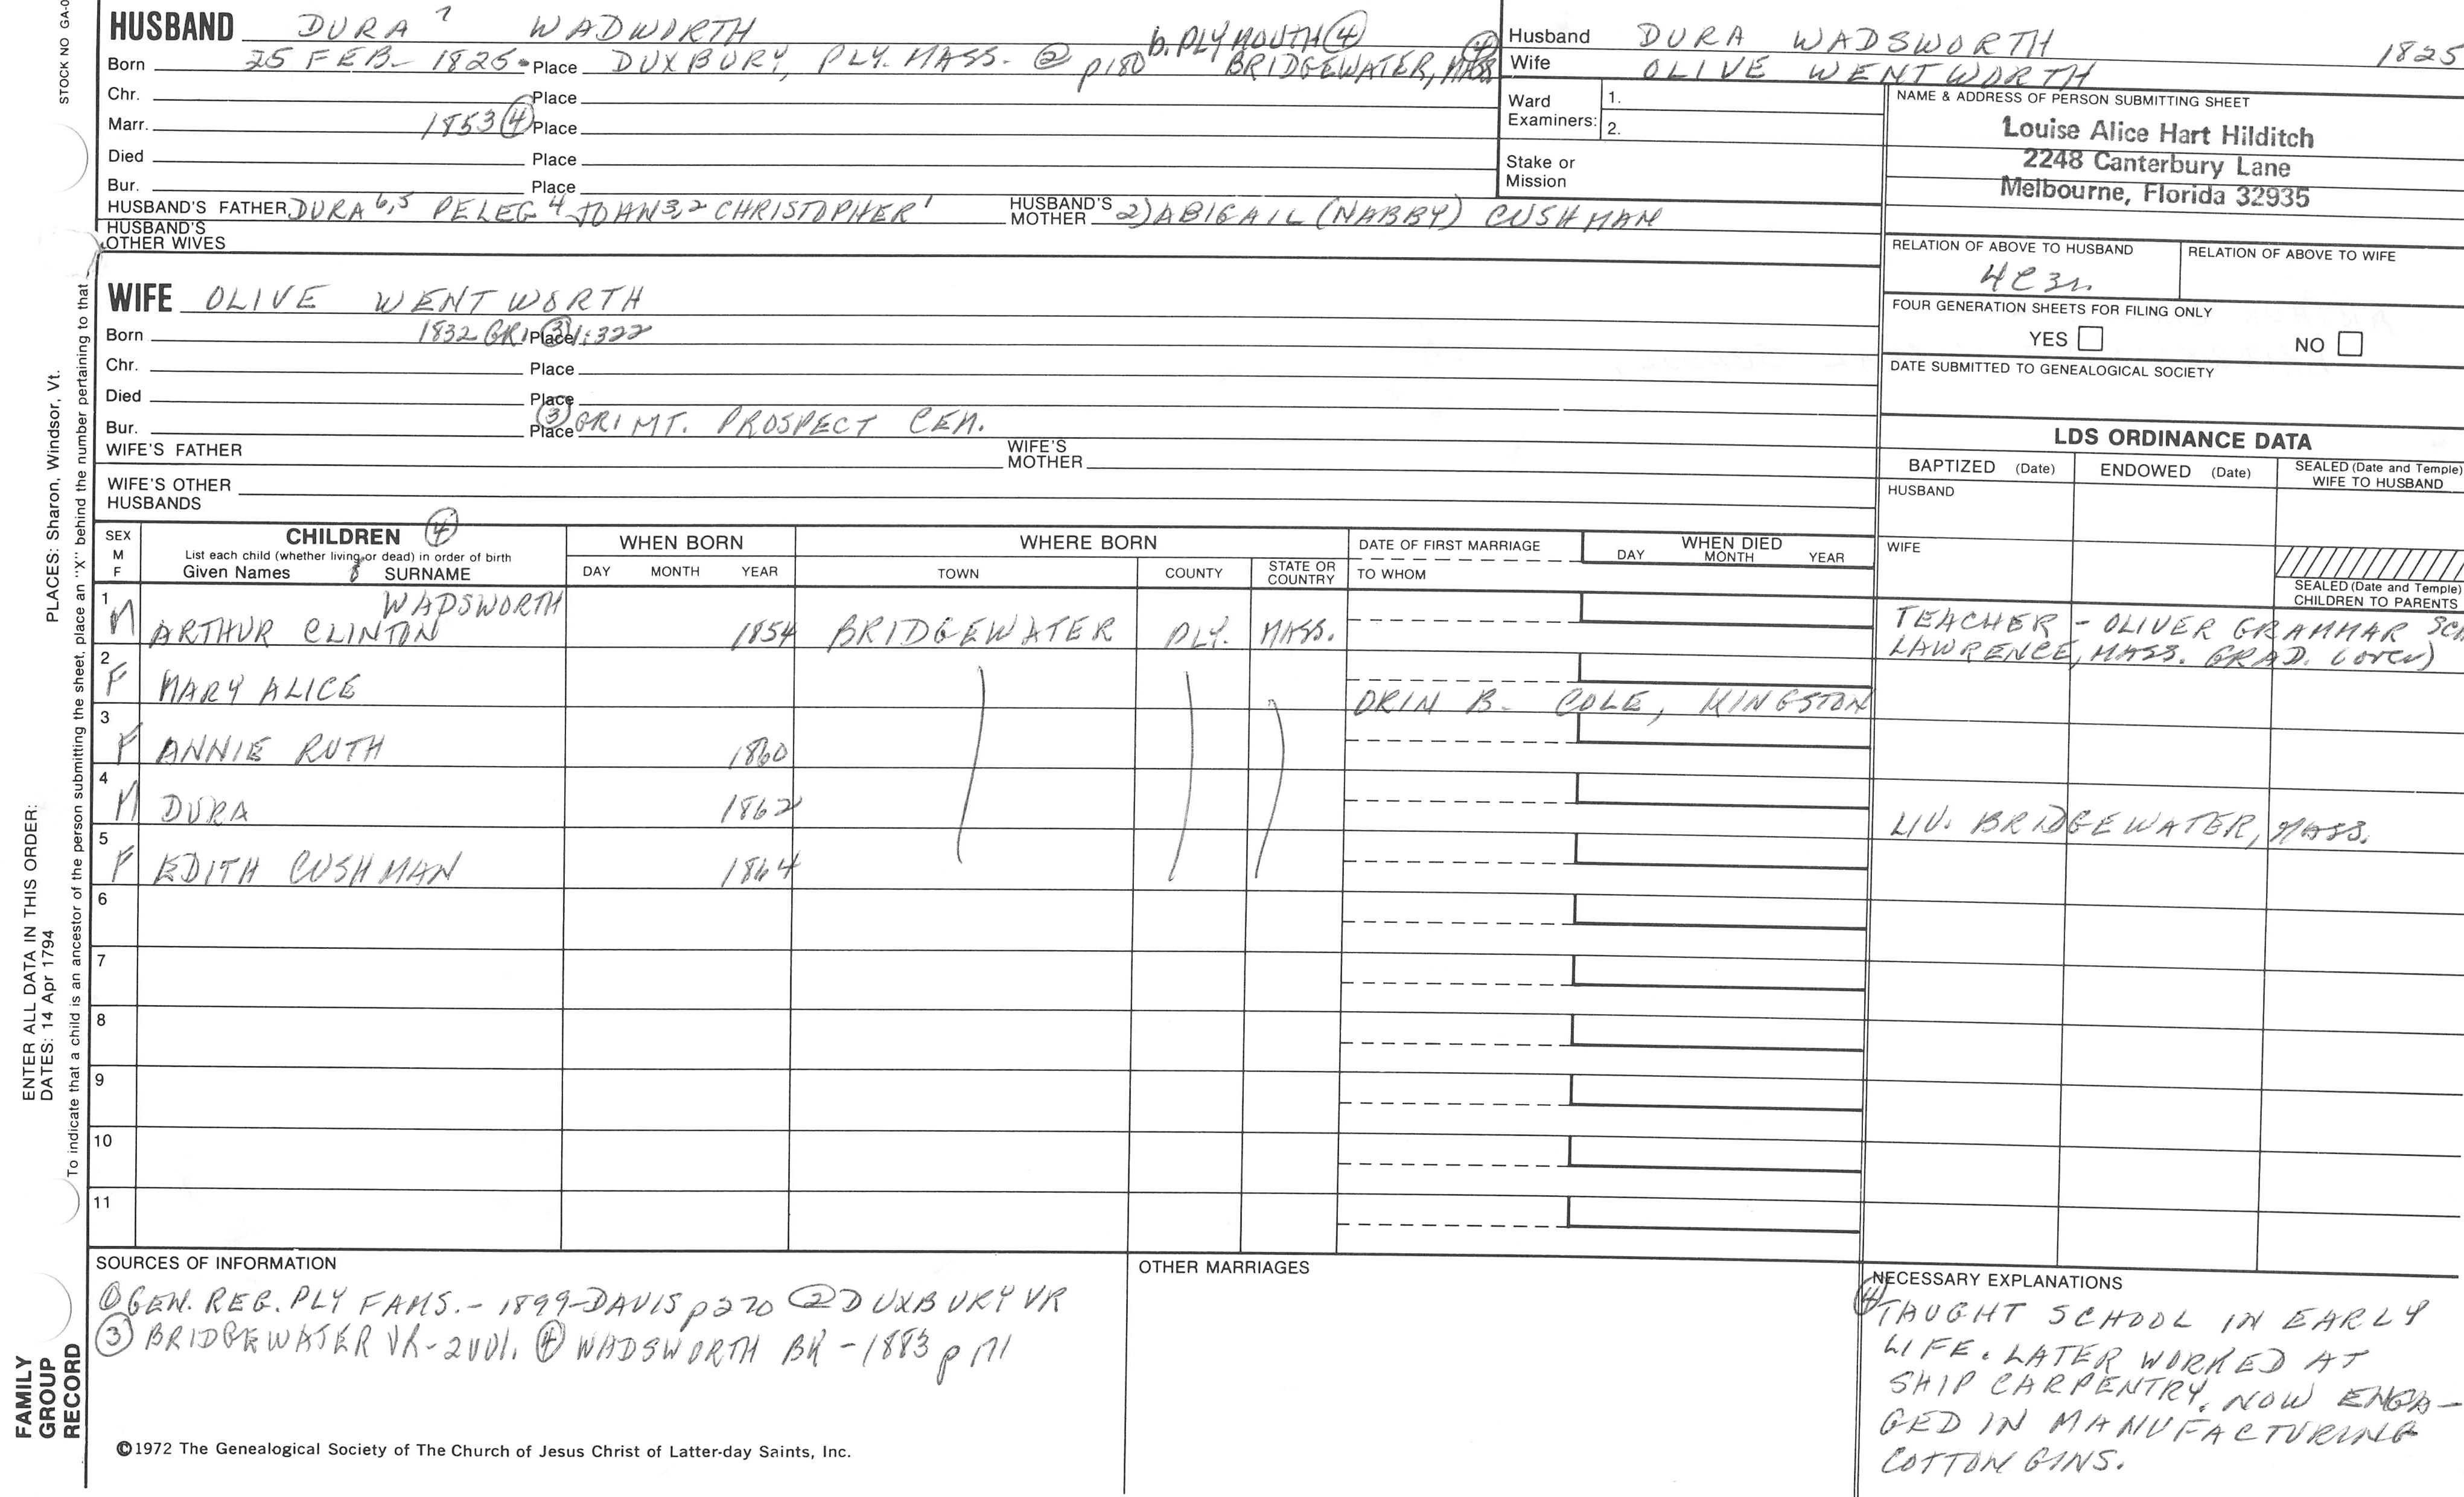 STOCK NO GA-0
HUSBAND DURA 7 WADWORTH b. PLYMOUTH ④
Born 25 FEB- 1825 Place DUXBURY, PLY. MASS. ② p180 BRIDGEWATER, MASS ④
Chr. Place
Marr. 1853 ④ Place
Died Place
Bur. Place
HUSBAND'S FATHER DURA 6,5 PELEG 4 JOHN 3,2 CHRISTOPHER 1 HUSBAND'S MOTHER 2) ABIGAIL (NABBY) CUSHMAN
HUSBAND'S OTHER WIVES
Husband DURA WADSWORTH 1825
Wife OLIVE WENTWORTH
Ward Examiners: 1.
2.
Stake or Mission
NAME & ADDRESS OF PERSON SUBMITTING SHEET
Louise Alice Hart Hilditch
2248 Canterbury Lane
Melbourne, Florida 32935
RELATION OF ABOVE TO HUSBAND RELATION OF ABOVE TO WIFE
4C3r.
FOUR GENERATION SHEETS FOR FILING ONLY
YES NO
DATE SUBMITTED TO GENEALOGICAL SOCIETY
WIFE OLIVE WENTWORTH
Born 1832 GRI Place ③ 1:322
Chr. Place
Died Place
Bur. Place ③ GRI MT. PROSPECT CEM.
WIFE'S FATHER WIFE'S MOTHER
WIFE'S OTHER HUSBANDS
LDS ORDINANCE DATA
BAPTIZED (Date) ENDOWED (Date) SEALED (Date and Temple) WIFE TO HUSBAND
HUSBAND
WIFE
SEALED (Date and Temple) CHILDREN TO PARENTS
SEX M F CHILDREN ④ WHEN BORN WHERE BORN DATE OF FIRST MARRIAGE WHEN DIED
List each child (whether living or dead) in order of birth
Given Names 8 SURNAME DAY MONTH YEAR TOWN COUNTY STATE OR COUNTRY TO WHOM DAY MONTH YEAR
WADSWORTH
1 M ARTHUR CLINTON 1854 BRIDGEWATER PLY. MASS. TEACHER - OLIVER GRAMMAR SCH
LAWRENCE, MASS. GRAD. (over)
2 F MARY ALICE ORIN B. COLE, KINGSTON
3 F ANNIE RUTH 1860
4 M DURA 1862 LIV. BRIDGEWATER, MASS.
5 F EDITH CUSHMAN 1864
6
7
8
9
10
11
SOURCES OF INFORMATION
① GEN. REG. PLY FAMS. - 1899-DAVIS p270 ② DUXBURY VR
③ BRIDGEWATER VR-2VOl. ④ WADSWORTH BK -1883 p171
OTHER MARRIAGES
NECESSARY EXPLANATIONS
④ TAUGHT SCHOOL IN EARLY
LIFE. LATER WORKED AT
SHIP CARPENTRY. NOW ENGA-
GED IN MANUFACTURING
COTTON GINS.
©1972 The Genealogical Society of The Church of Jesus Christ of Latter-day Saints, Inc.
ENTER ALL DATA IN THIS ORDER:
DATES: 14 Apr 1794
PLACES: Sharon, Windsor, Vt.
To indicate that a child is an ancestor of the person submitting the sheet, place an "X" behind the number pertaining to that
FAMILY
GROUP
RECORD